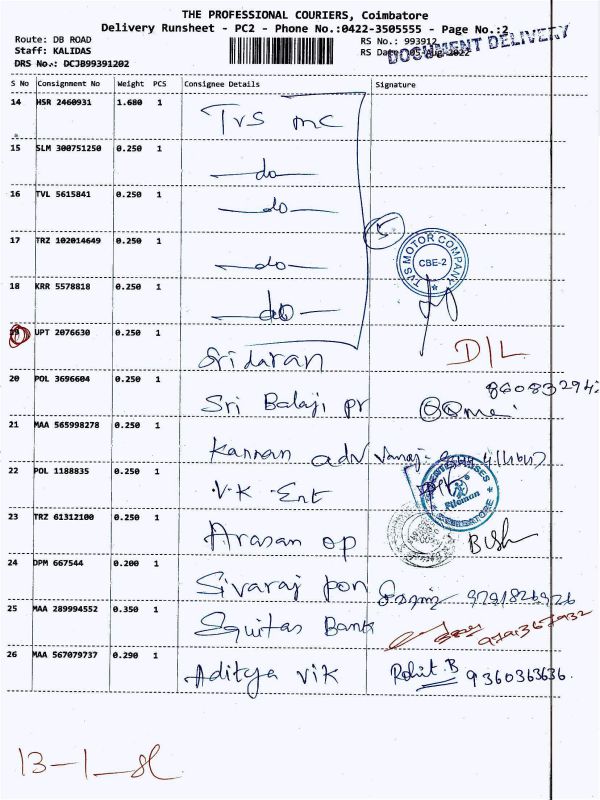 THE PROFESSIONAL COURIERS, Coimbatore
Delivery Runsheet - PC2 - Phone No.:0422-3505555 - Page No.:2
Route: DB ROAD
RS No.: 993912
DOCUMENT DELIVERY
Staff: KALIDAS
RS Date: 05-Aug-2022
DRS No.: DCJB99391202
S No Consignment No Weight PCS Consignee Details Signature
14 HSR 2460931 1.680 1 TVS mc
15 SLM 300751250 0.250 1 do
16 TVL 5615841 0.250 1 do
17 TRZ 102014649 0.250 1 do
TVS MOTOR COMPANY
CBE-2
18 KRR 5578818 0.250 1 do
19 UPT 2076630 0.250 1 Sridaran D/L
20 POL 3696604 0.250 1 Sri Balaji pr
21 MAA 565998278 0.250 1 Kannan adv
22 POL 1188835 0.250 1 V.K Ent
23 TRZ 61312100 0.250 1 Arasan op
24 DPM 667544 0.200 1 Sivaraj pon 9791826926
25 MAA 289994552 0.350 1 Equitas Bank
26 MAA 567079737 0.290 1 Aditya Vik Rohit.B 9360363636
13-1-